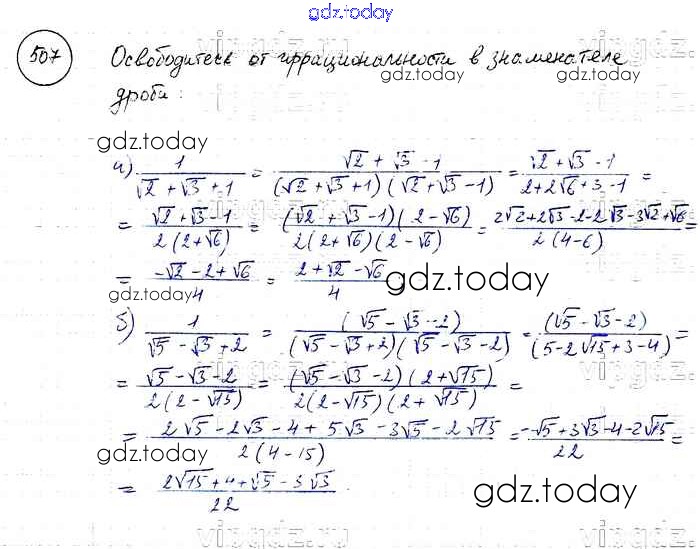 gdz.today
507 Освободитесь от иррациональности в знаменателе
gdz.today
дроби:
gdz.today
а) 1/(√2 + √3 + 1) = (√2 + √3 - 1)/((√2 + √3 + 1)(√2 + √3 - 1)) = (√2 + √3 - 1)/(2 + 2√6 + 3 - 1) =
= (√2 + √3 - 1)/(2(2 + √6)) = ((√2 + √3 - 1)(2 - √6))/(2(2 + √6)(2 - √6)) = (2√2 + 2√3 - 2 - 2√3 - 3√2 + √6)/(2(4 - 6)) =
= (-√2 - 2 + √6)/4 = (2 + √2 - √6)/4
gdz.today gdz.today
б) 1/(√5 - √3 + 2) = (√5 - √3 - 2)/((√5 - √3 + 2)(√5 - √3 - 2)) = (√5 - √3 - 2)/(5 - 2√15 + 3 - 4) =
= (√5 - √3 - 2)/(2(2 - √15)) = ((√5 - √3 - 2)(2 + √15))/(2(2 - √15)(2 + √15)) =
= (2√5 - 2√3 - 4 + 5√3 - 3√5 - 2√15)/(2(4 - 15)) = (-√5 + 3√3 - 4 - 2√15)/22 =
gdz.today
= (2√15 + 4 + √5 - 3√3)/22
gdz.today